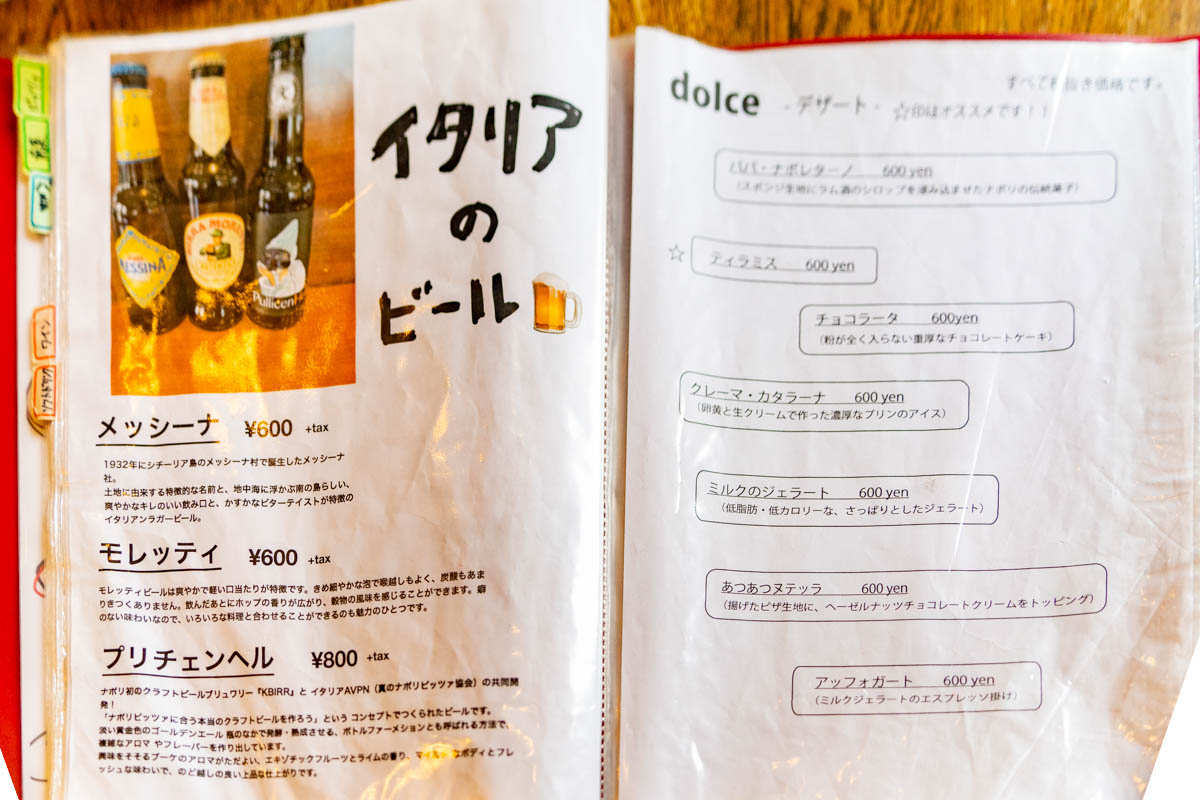 イタリア
の
ビール
MESSINA
BIRRA MORETTI
メッシーナ ¥600 +tax
1932年にシチーリア島のメッシーナ村で誕生したメッシーナ
社。
土地に由来する特徴的な名前と、地中海に浮かぶ南の島らしい、
爽やかなキレのいい飲み口と、かすかなビターテイストが特徴の
イタリアンラガービール。
モレッティ ¥600 +tax
モレッティビールは爽やかで軽い口当たりが特徴です。きめ細やかな泡で喉越しもよく、炭酸もあま
りきつくありません。飲んだあとにホップの香りが広がり、穀物の風味を感じることができます。癖
のない味わいなので、いろいろな料理と合わせることができるのも魅力のひとつです。
プリチェンヘル ¥800 +tax
ナポリ初のクラフトビールブリュワリー『KBIRR』と イタリアAVPN（真のナポリピッツァ協会）の共同開
発！
「ナポリピッツァに合う本当のクラフトビールを作ろう」という コンセプトでつくられたビールです。
淡い黄金色のゴールデンエール 瓶のなかで発酵・熟成させる、ボトルファーメションとも呼ばれる方法で、
複雑なアロマ やフレーバーを作り出しています。
興味をそそるブーケのアロマがただよい、エキゾチックフルーツとライムの香り、マイルドなボディとフレ
ッシュな味わいで、のど越しの良い上品な仕上がりです。
dolce - デザート - すべて税抜き価格です。
☆印はオススメです！！
ババ・ナポレターノ 600 yen
（スポンジ生地にラム酒のシロップを滲み込ませたナポリの伝統菓子）
☆ ティラミス 600 yen
チョコラータ 600yen
（粉が全く入らない重厚なチョコレートケーキ）
クレーマ・カタラーナ 600 yen
（卵黄と生クリームで作った濃厚なプリンのアイス）
ミルクのジェラート 600 yen
（低脂肪・低カロリーな、さっぱりとしたジェラート）
あつあつヌテッラ 600 yen
（揚げたピザ生地に、ヘーゼルナッツチョコレートクリームをトッピング）
アッフォガート 600 yen
（ミルクジェラートのエスプレッソ掛け）
ワイン